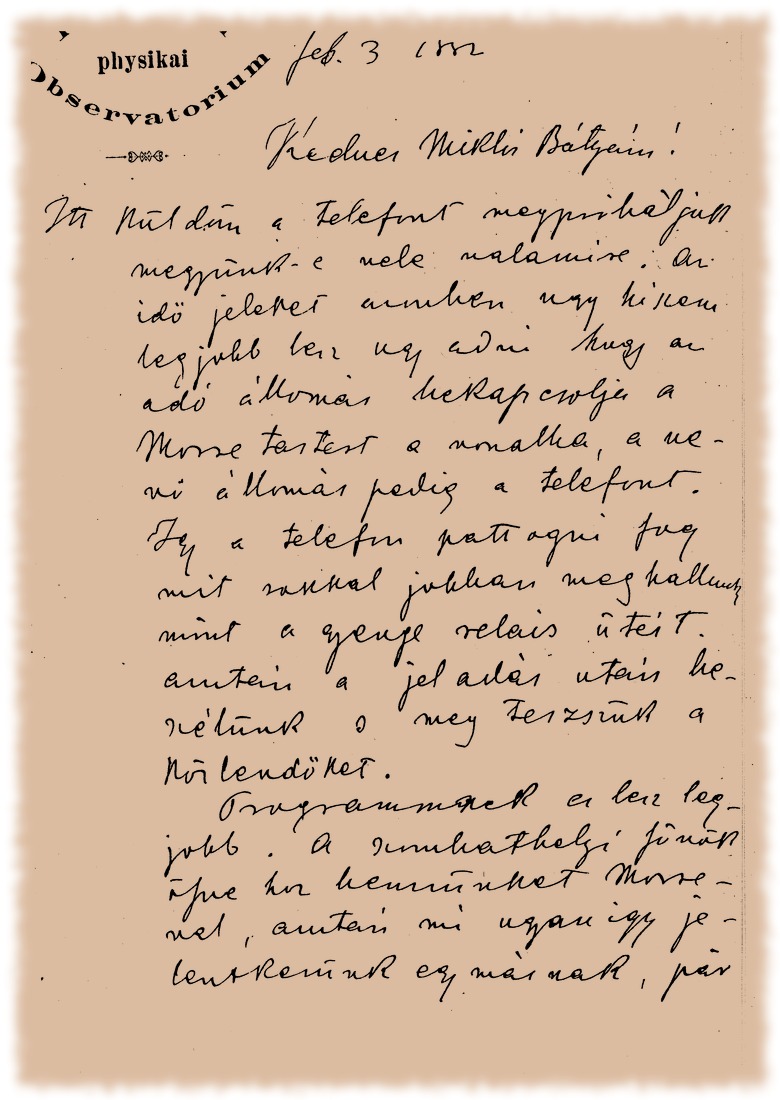 physikai
Observatorium
feb. 3 1882
Kedves Miklós Bátyám!
Itt küldöm a telefont megpróbáljuk
megyünk-e vele valamire. Az
idő jeleket azonban ugy hiszem
legjobb lesz ugy adni hogy az
adó állomás bekapcsolja a
Morse tastert a vonalba, a ve-
vő állomás pedig a telefont.
Igy a telefon pattogni fog
mit sokkal jobban meghallunk
mint a gyenge relais ütéit.
azután a jeladás után be-
szélünk s meg teszszük a
közlendőket.
Programmnak ez lesz leg-
jobb. A szombathelyi főnök
össze hoz bennünket Morse-
val, azután mi ugyan igy je-
lentkezünk egymásnak, pár